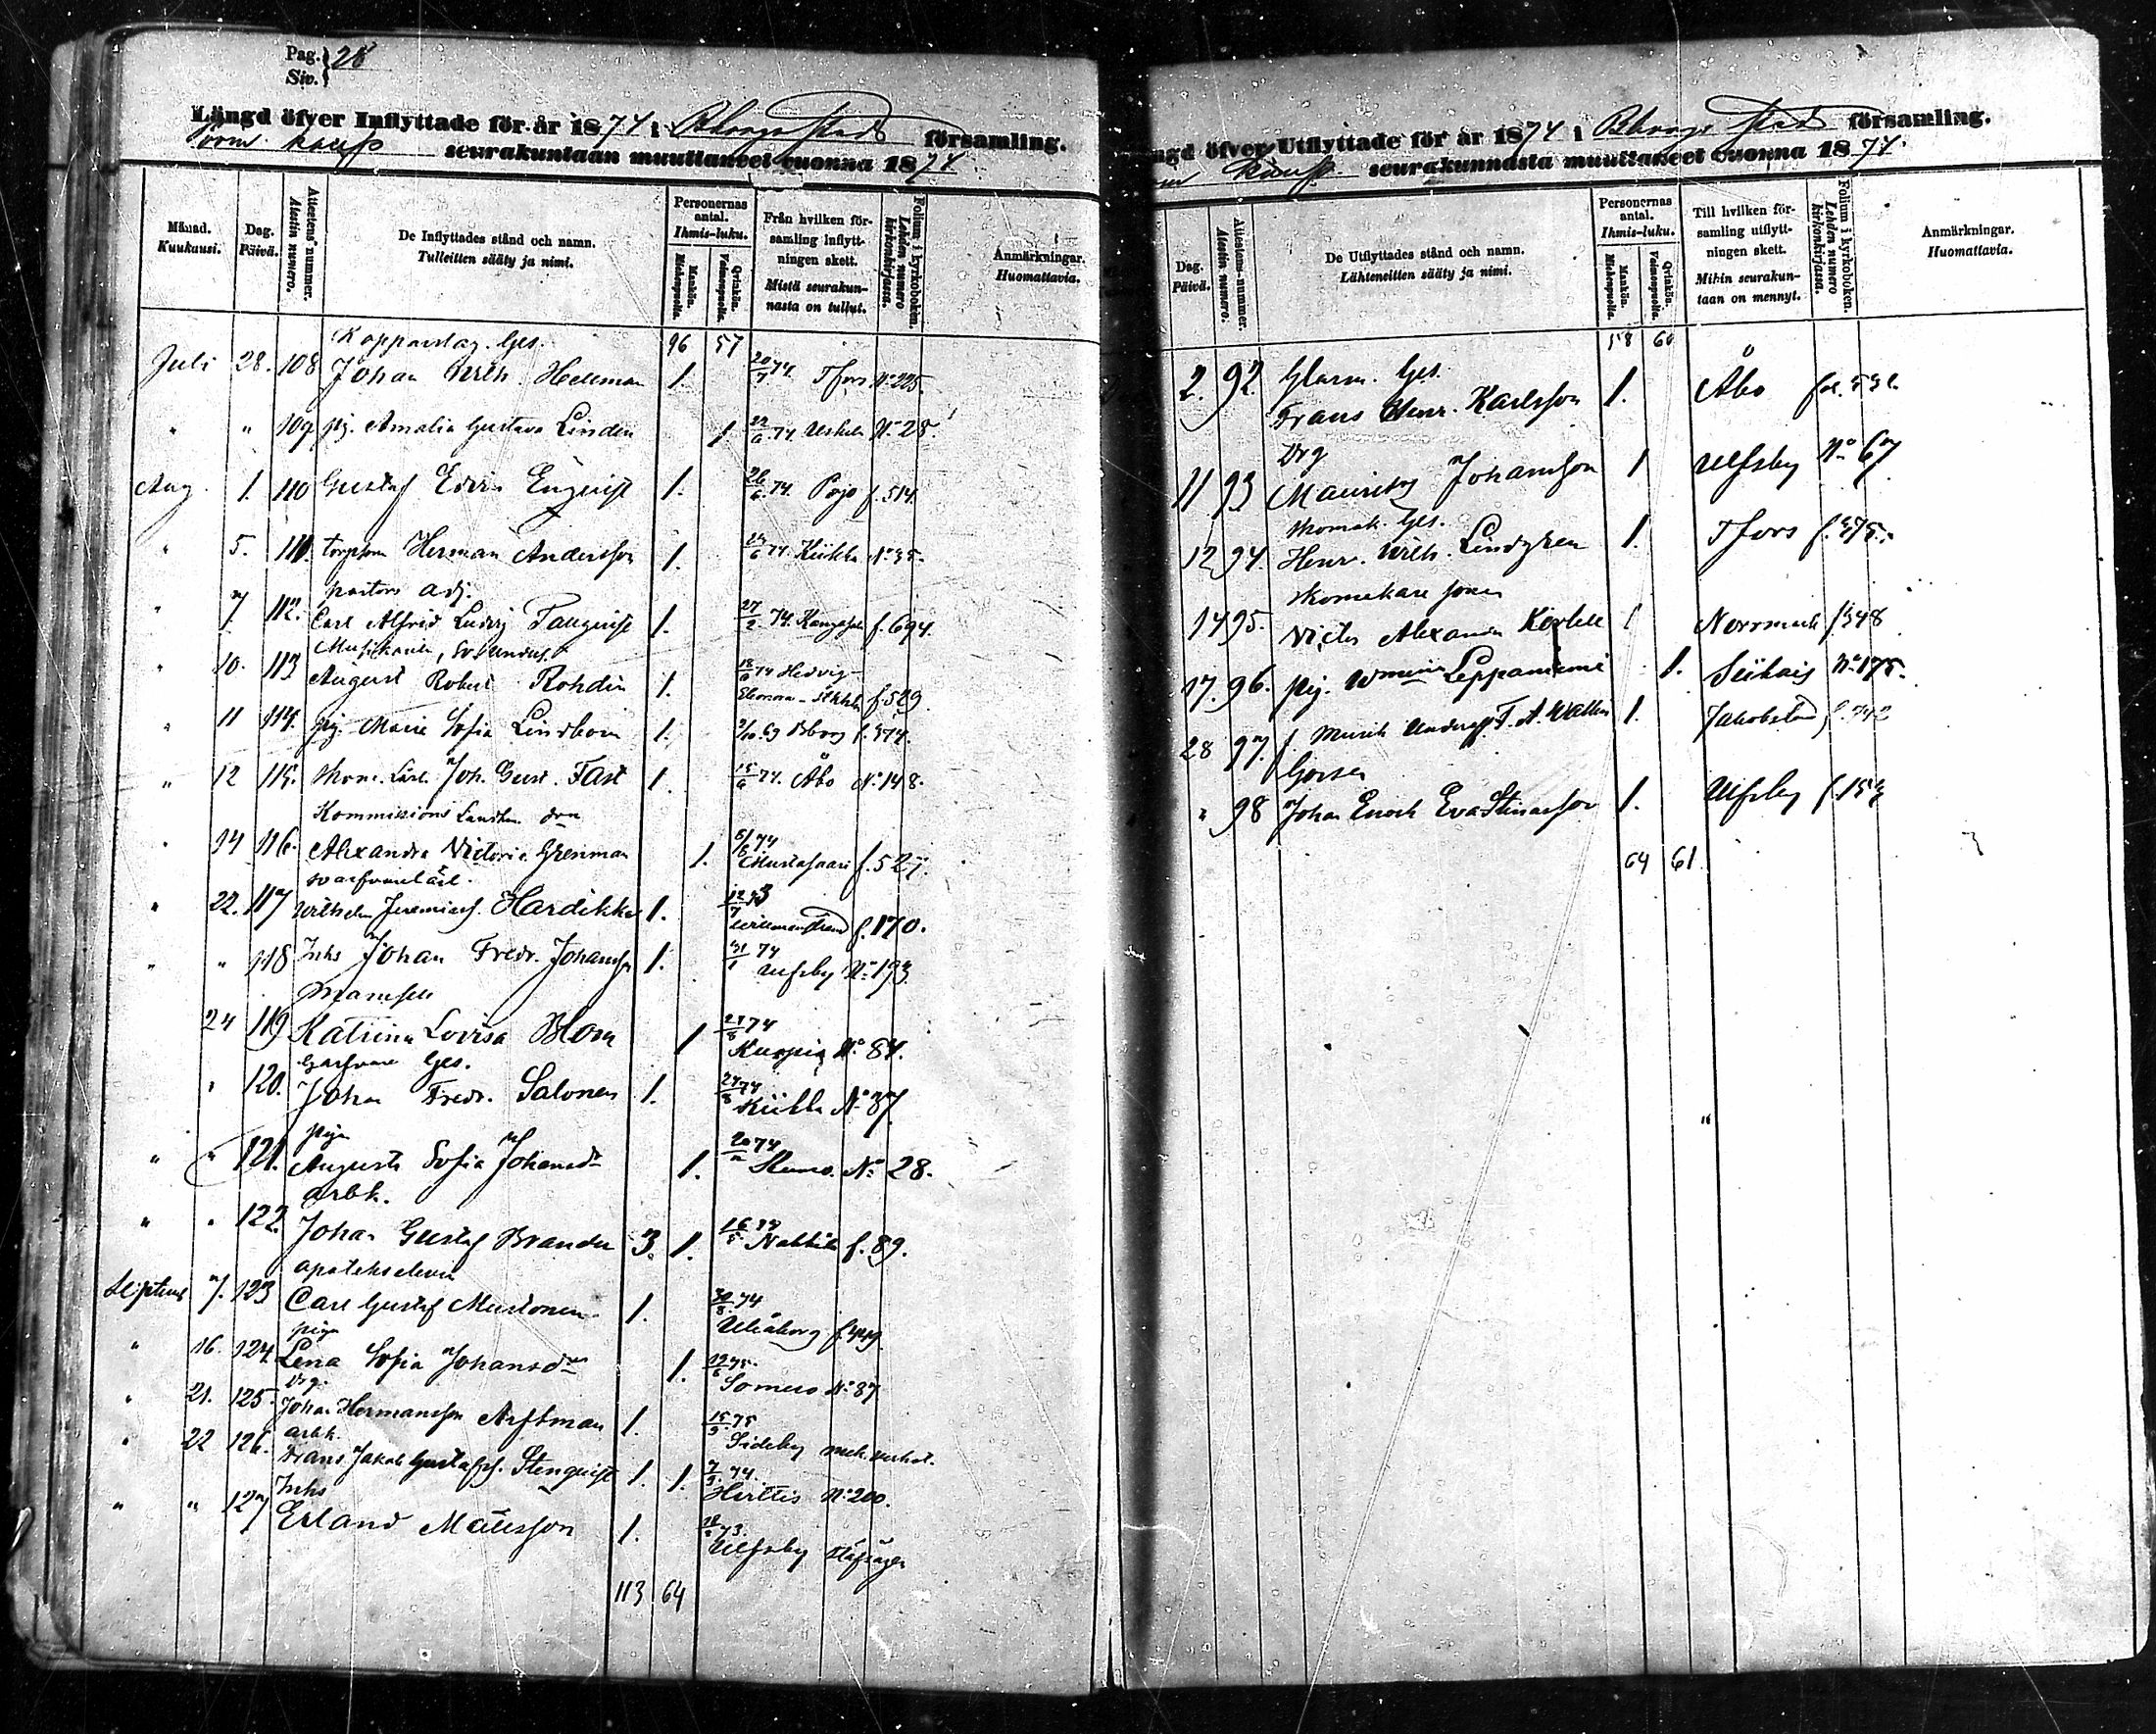 Pag. 28
Siv.
Längd öfver Inflyttade för år 1874 i Bborgs stad församling.
Porin kaup seurakuntaan muuttaneet vuonna 1874
Månad. Kuukausi.
Dag. Päivä.
Attestens nummer. Atestin numero.
De Inflyttades stånd och namn. Tulleitten sääty ja nimi.
Personernas antal. Ihmis-luku.
Mankön. Miehenpuolia.
Qvinkön. Vaimonpuolia.
Från hvilken församling inflyttningen skett. Mistä seurakunnasta on tullut.
Folium i kyrkoboken. Lehden numero kirkonkirjassa.
Anmärkningar. Huomattavia.
96 57
Kopparslag. Ges.
Juli 28. 108 Johan Wilh. Hellman 1. 20/7 74 Tfors No 225.
" " 109 pig. Amalia Gustava Linden 1 22/6 74 Uskela No 28.
Aug. 1. 110 Gustaf Edvin Engqvist 1. 26/6 74. Pojo f. 514.
" 5. 111. torpson Herman Andersson 1. 24/6 74. Kiikka No 35.
pastors adj.
" 7 112. Carl Alfrid Ludvig Tanqvist 1. 27/2 74. Kangasala f. 694.
" 10. 113 August Robert Rohdin 1. 18/6 74 Hedvig
Eleonora - Stkhlm f. 529.
" 11 114. pig. Maria Sofia Lindbom 1. 2/10 69 Bborg f. 374.
" 12 115. Skom. Lärl. Joh. Gust. Fast 1. 15/6 74. Åbo No 148.
Kommissions Landtm dra
" 14 116. Alexandra Victoria Grenman 1. 5/8 74
Mustasaari f. 527.
svarfvarelärl.
" 22. 117 Wilhelm Jeremias Hardikka 1. 12/7 73
Willmanstrand f. 170.
" " 118 Inhs Johan Fredr. Johansson 1. 31/1 74
Ulfsby No 193.
Mamsell
24 119 Katrina Lovisa Blom 1 21/8 74
Kuopio No 84.
Garfvare Ges.
" 120. Johan Fredr. Salonen 1. 24/8 74
Kiikka No 87
piga
" " 121. Augusta Sofia Johansdr 1. 20 74
Kumo. No 28.
arbk.
" " 122. Johan Gustaf Brander 3. 1. 16/8 74 Nakkila f. 89.
apotekselever
Septemb 7. 123 Carl Gustaf Mustonen 1. 30/8. 74
Uleåborg f. 449.
piga
" 16. 124. Lena Sofia Johansdr 1. 19/6 75.
Somero No 87
Drg.
" 21. 125. Johan Hermansson Arftman 1. 15/9 75
Sideby
arbk.
" 22 126. Frans Jakob Gustafss. Stenqvist 1. 1. 7/9. 74.
Hvittis No 200.
Inhs
" " 127 Erland Mattsson 1. 73.
Ulfsby
113 64
ngd öfver Utflyttade för år 1874 i Bborgs stad församling.
kaup. seurakunnasta muuttaneet vuonna 1874.
Dag. Päivä.
Attestens-nummer. Atestin numero.
De Utflyttades stånd och namn. Lähteneitten sääty ja nimi.
Personernas antal. Ihmis-luku.
Mankön. Miehenpuolia.
Qvinkön. Vaimonpuolia.
Till hvilken församling utflyttningen skett. Mihin seurakuntaan on mennyt.
Folium i kyrkoboken. Lehden numero kirkonkirjassa.
Anmärkningar. Huomattavia.
58 60
Glasm. Ges.
2. 92. Frans Henr. Karlsson 1. Åbo
Drg
11 93 Mauritz Johansson 1 Ulfsby No 67
Skomak. Ges.
12 94. Henr. Wilh. Lindgren 1. Tfors f. 375.
Skomakare sonen
14 95. Victor Alexander 1 Norrmark f. 348
17. 96. pig. Wmina Leppaniemi 1. Siikais No 175.
28 97. f. Musik Underoff. F. A. Wallin 1. Jakobstad f. 342
Gossen
" 98 Johan Enoch Eva Stinasson 1. Ulfsby f. 153
64 61.